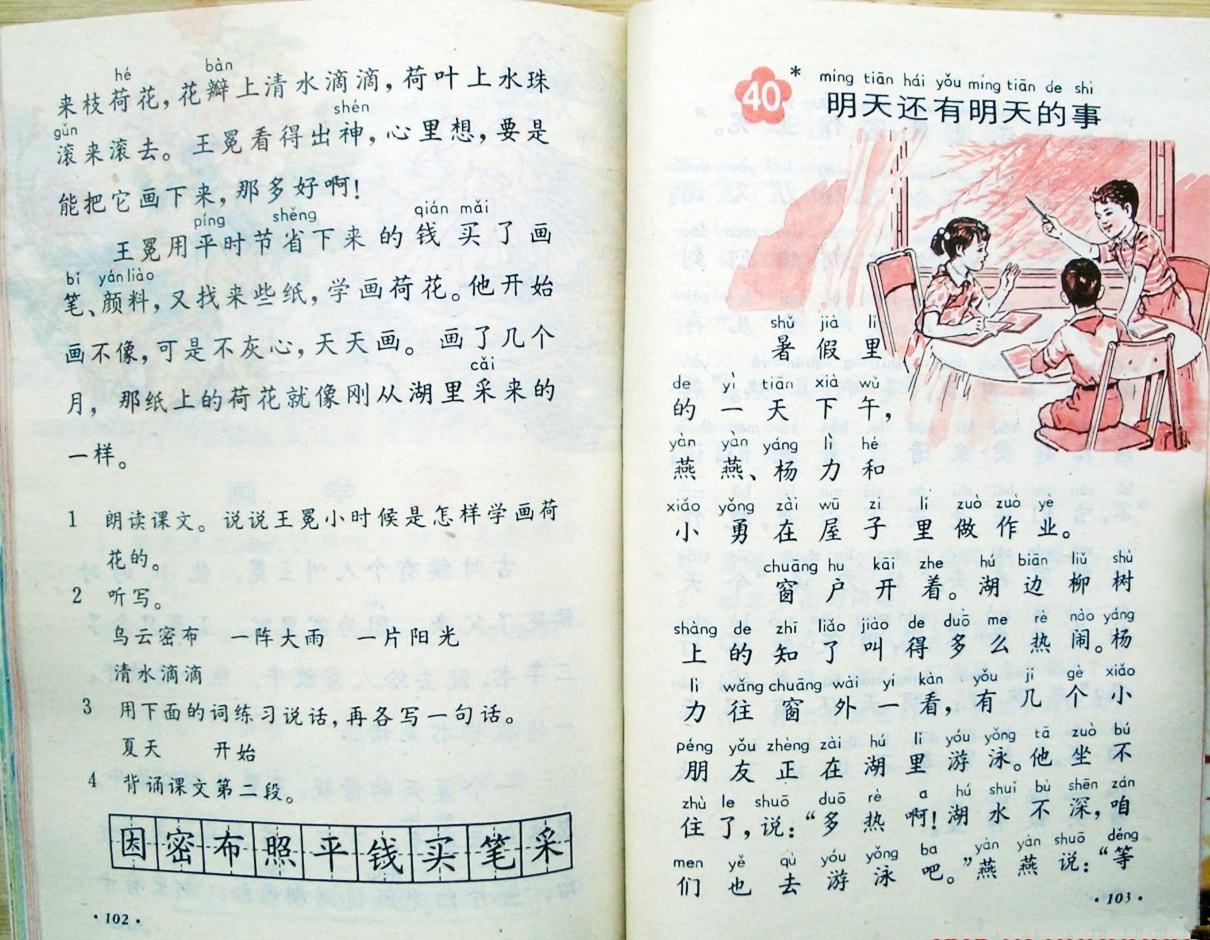 hé bàn
来枝荷花，花瓣上清水滴滴，荷叶上水珠
gǔn shén
滚来滚去。王冕看得出神，心里想，要是
能把它画下来，那多好啊！
píng shěng qián mǎi
王冕用平时节省下来的钱买了画
bǐ yán liào
笔、颜料，又找来些纸，学画荷花。他开始
画不像，可是不灰心，天天画。画了几个
cǎi
月，那纸上的荷花就像刚从湖里采来的
一样。
1 朗读课文。说说王冕小时候是怎样学画荷
花的。
2 听写。
乌云密布 一阵大雨 一片阳光
清水滴滴
3 用下面的词练习说话，再各写一句话。
夏天 开始
4 背诵课文第二段。
因密布照平钱买笔采
·102·
míng tiān hái yǒu míng tiān de shì
40* 明天还有明天的事
shǔ jià lǐ
暑假里
de yì tiān xià wǔ
的一天下午，
yàn yàn yáng lì hé
燕燕、杨力和
xiǎo yǒng zài wū zi lǐ zuò zuò yè
小勇在屋子里做作业。
chuāng hu kāi zhe hú biān liǔ shù
窗户开着。湖边柳树
shàng de zhī liǎo jiào de duō me rè nào yáng
上的知了叫得多么热闹。杨
lì wǎng chuāng wài yi kàn yǒu jǐ gè xiǎo
力往窗外一看，有几个小
péng yǒu zhèng zài hú lǐ yóu yǒng tā zuò bú
朋友正在湖里游泳。他坐不
zhù le shuō duō rè a hú shuǐ bù shēn zán
住了，说：“多热啊！湖水不深，咱
men yě qù yóu yǒng ba yàn yàn shuō děng
们也去游泳吧。”燕燕说：“等
·103·